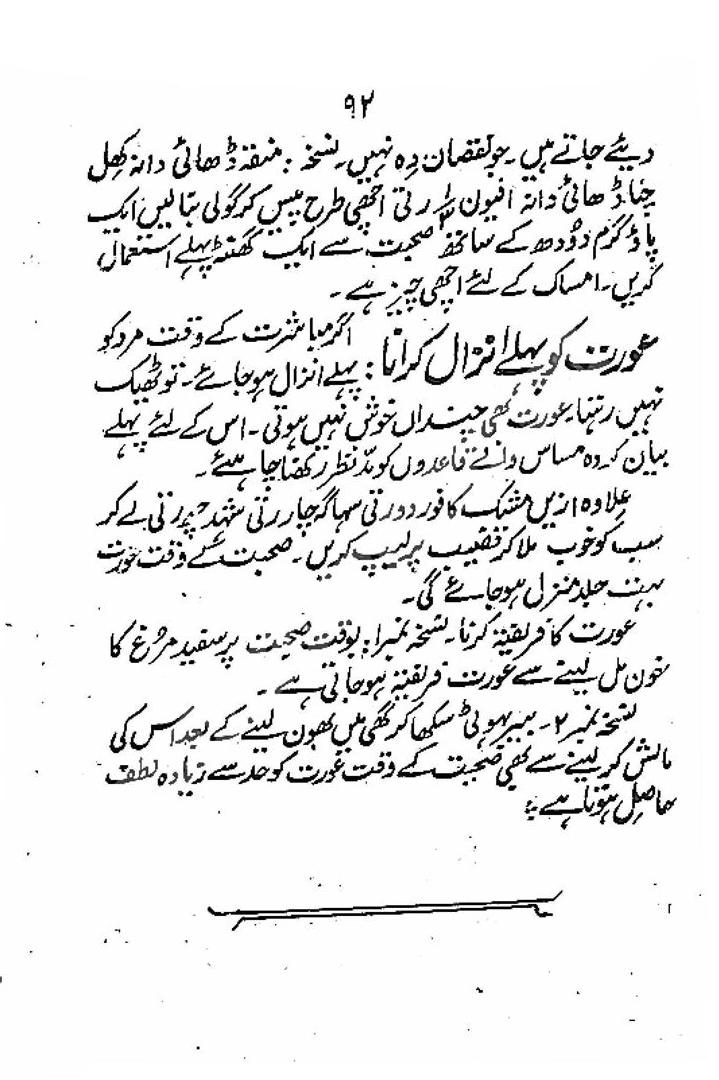 ۹۲
دیئے جاتے ہیں۔ جو نقصان دِہ نہیں۔ نسخہ: منقہ ڈھائی دانہ کھل
چنا ڈھائی دانہ افیون رتی اچھی طرح پیس کر گولی بنا لیں ایک
پاؤ گرم دُودھ کے ساتھ صحبت سے ایک گھنٹہ پہلے استعمال
کریں۔ امساک کے لئے اچھی چیز ہے۔
عورت کو پہلے انزال کرانا: اگر مباشرت کے وقت مرد کو
پہلے انزال ہو جائے۔ تو ٹھیک
نہیں رہتا۔ عورت بھی چنداں خوش نہیں ہوتی۔ اس کے لئے پہلے
بیان کردہ مساس والے قاعدوں کو مدّ نظر رکھنا چاہئے۔
عِلاوہ ازیں مشک کافور دو رتی سہاگہ چار رتی شہد رتی لے کر
سب کو خوب ملا کر قضیب پر لیپ کریں۔ صحبت کے وقت عورت
بہت جلد منزل ہو جائے گی۔
عورت کا فریفتہ کرنا۔ نسخہ نمبر ۱: بوقت صحبت پر سفید مُرغ کا
خون مل لینے سے عورت فریفتہ ہو جاتی ہے۔
نسخہ نمبر ۲۔ بیر بہوٹی سکھا کر گھی میں بھون لینے کے بعد اس کی
مالش کر لینے سے بھی صحبت کے وقت عورت کو حد سے زیادہ لطف
حاصِل ہوتا ہے؛